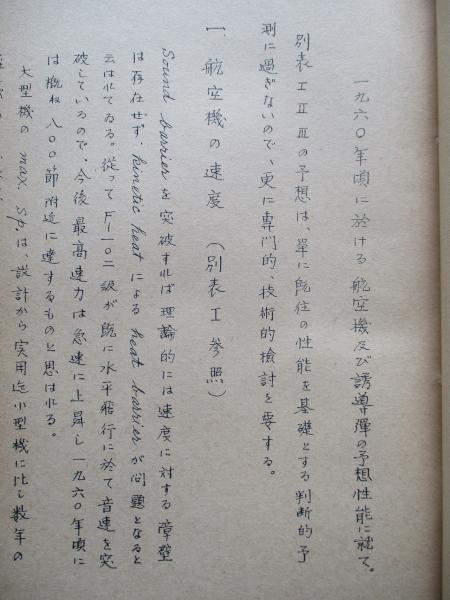 一九六〇年頃に於ける航空機及び誘導弾の予想性能に就て。
別表ⅠⅡⅢの予想は、単に既往の性能を基礎とする判断的予
測に過ぎないので、更に専門的、技術的検討を要する。
一、航空機の速度 (別表Ⅰ参照)
Sound barrierを突破すれば理論的には速度に対する障壁
は存在せず、kinetic heatによるheat barrierが問題となると
云はれてゐる。従ってF一〇二級が既に水平飛行に於て音速を突
破しているので、今後最高速力は急速に上昇し一九六〇年頃に
は概ね八〇〇節附近に達するものと思はれる。
大型機のmax Sp.は、設計から実用迄小型機に比し数年の